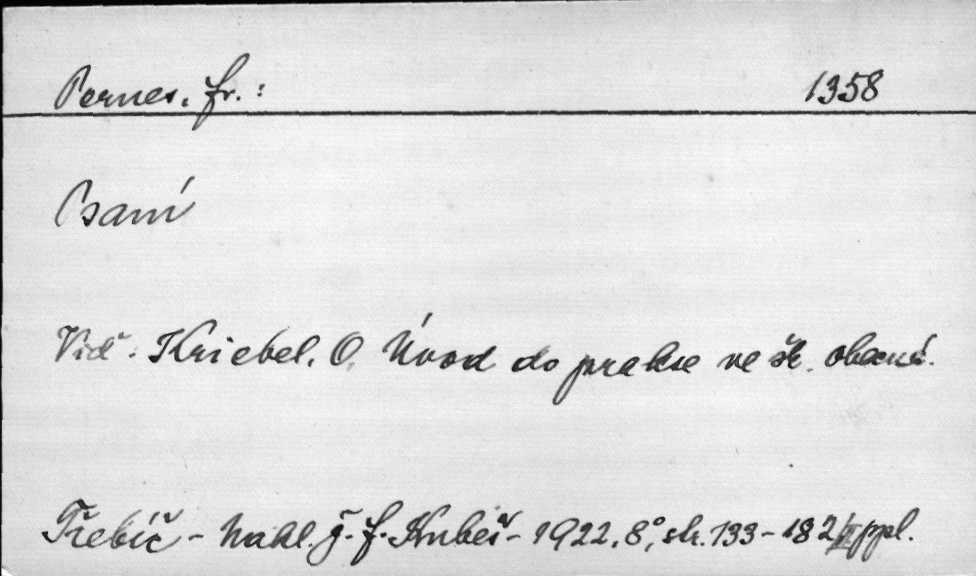 Pernes, Fr.: 1358
Psaní
Viď: Kriebel, O. Úvod do prakse ve šk. obecné.
Třebíč - Nakl. J. F. Kubeš - 1922, 8°, str. 133 - 182/II ppl.